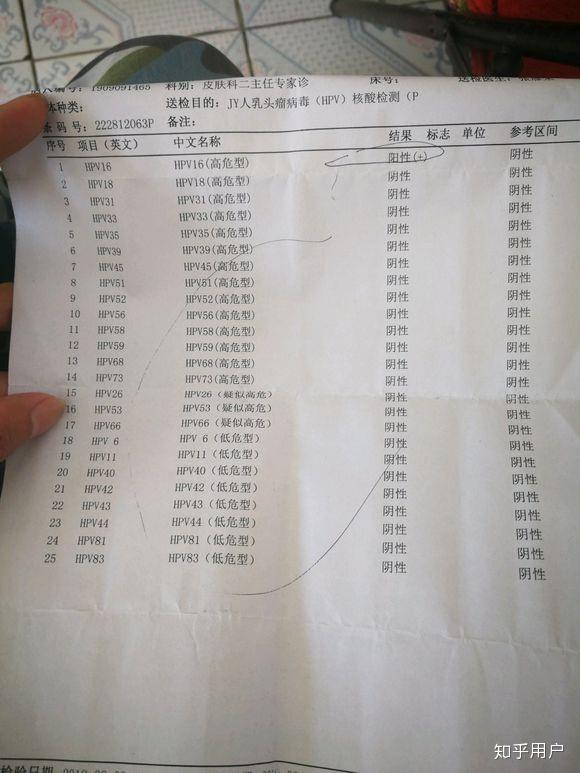 1909091465 科别: 皮肤科二主任专家诊 床号: 送检医生:
体种类: 送检目的: JY人乳头瘤病毒 (HPV) 核酸检测 (P
条 码 号: 222812063P 备注:
序号 项目 (英文) 中文名称 结果 标志 单位 参考区间
1 HPV16 HPV16(高危型) 阳性(+) 阴性
2 HPV18 HPV18(高危型) 阴性 阴性
3 HPV31 HPV31(高危型) 阴性 阴性
4 HPV33 HPV33(高危型) 阴性 阴性
5 HPV35 HPV35(高危型) 阴性 阴性
6 HPV39 HPV39(高危型) 阴性 阴性
7 HPV45 HPV45(高危型) 阴性 阴性
8 HPV51 HPV51(高危型) 阴性 阴性
9 HPV52 HPV52(高危型) 阴性 阴性
10 HPV56 HPV56(高危型) 阴性 阴性
11 HPV58 HPV58(高危型) 阴性 阴性
12 HPV59 HPV59(高危型) 阴性 阴性
13 HPV68 HPV68(高危型) 阴性 阴性
14 HPV73 HPV73(高危型) 阴性 阴性
15 HPV26 HPV26 (疑似高危) 阴性 阴性
16 HPV53 HPV53 (疑似高危) 阴性 阴性
17 HPV66 HPV66 (疑似高危) 阴性 阴性
18 HPV 6 HPV 6 (低危型) 阴性 阴性
19 HPV11 HPV11 (低危型) 阴性 阴性
20 HPV40 HPV40 (低危型) 阴性 阴性
21 HPV42 HPV42 (低危型) 阴性 阴性
22 HPV43 HPV43 (低危型) 阴性 阴性
23 HPV44 HPV44 (低危型) 阴性 阴性
24 HPV81 HPV81 (低危型) 阴性 阴性
25 HPV83 HPV83 (低危型) 阴性 阴性
检验日期
知乎用户